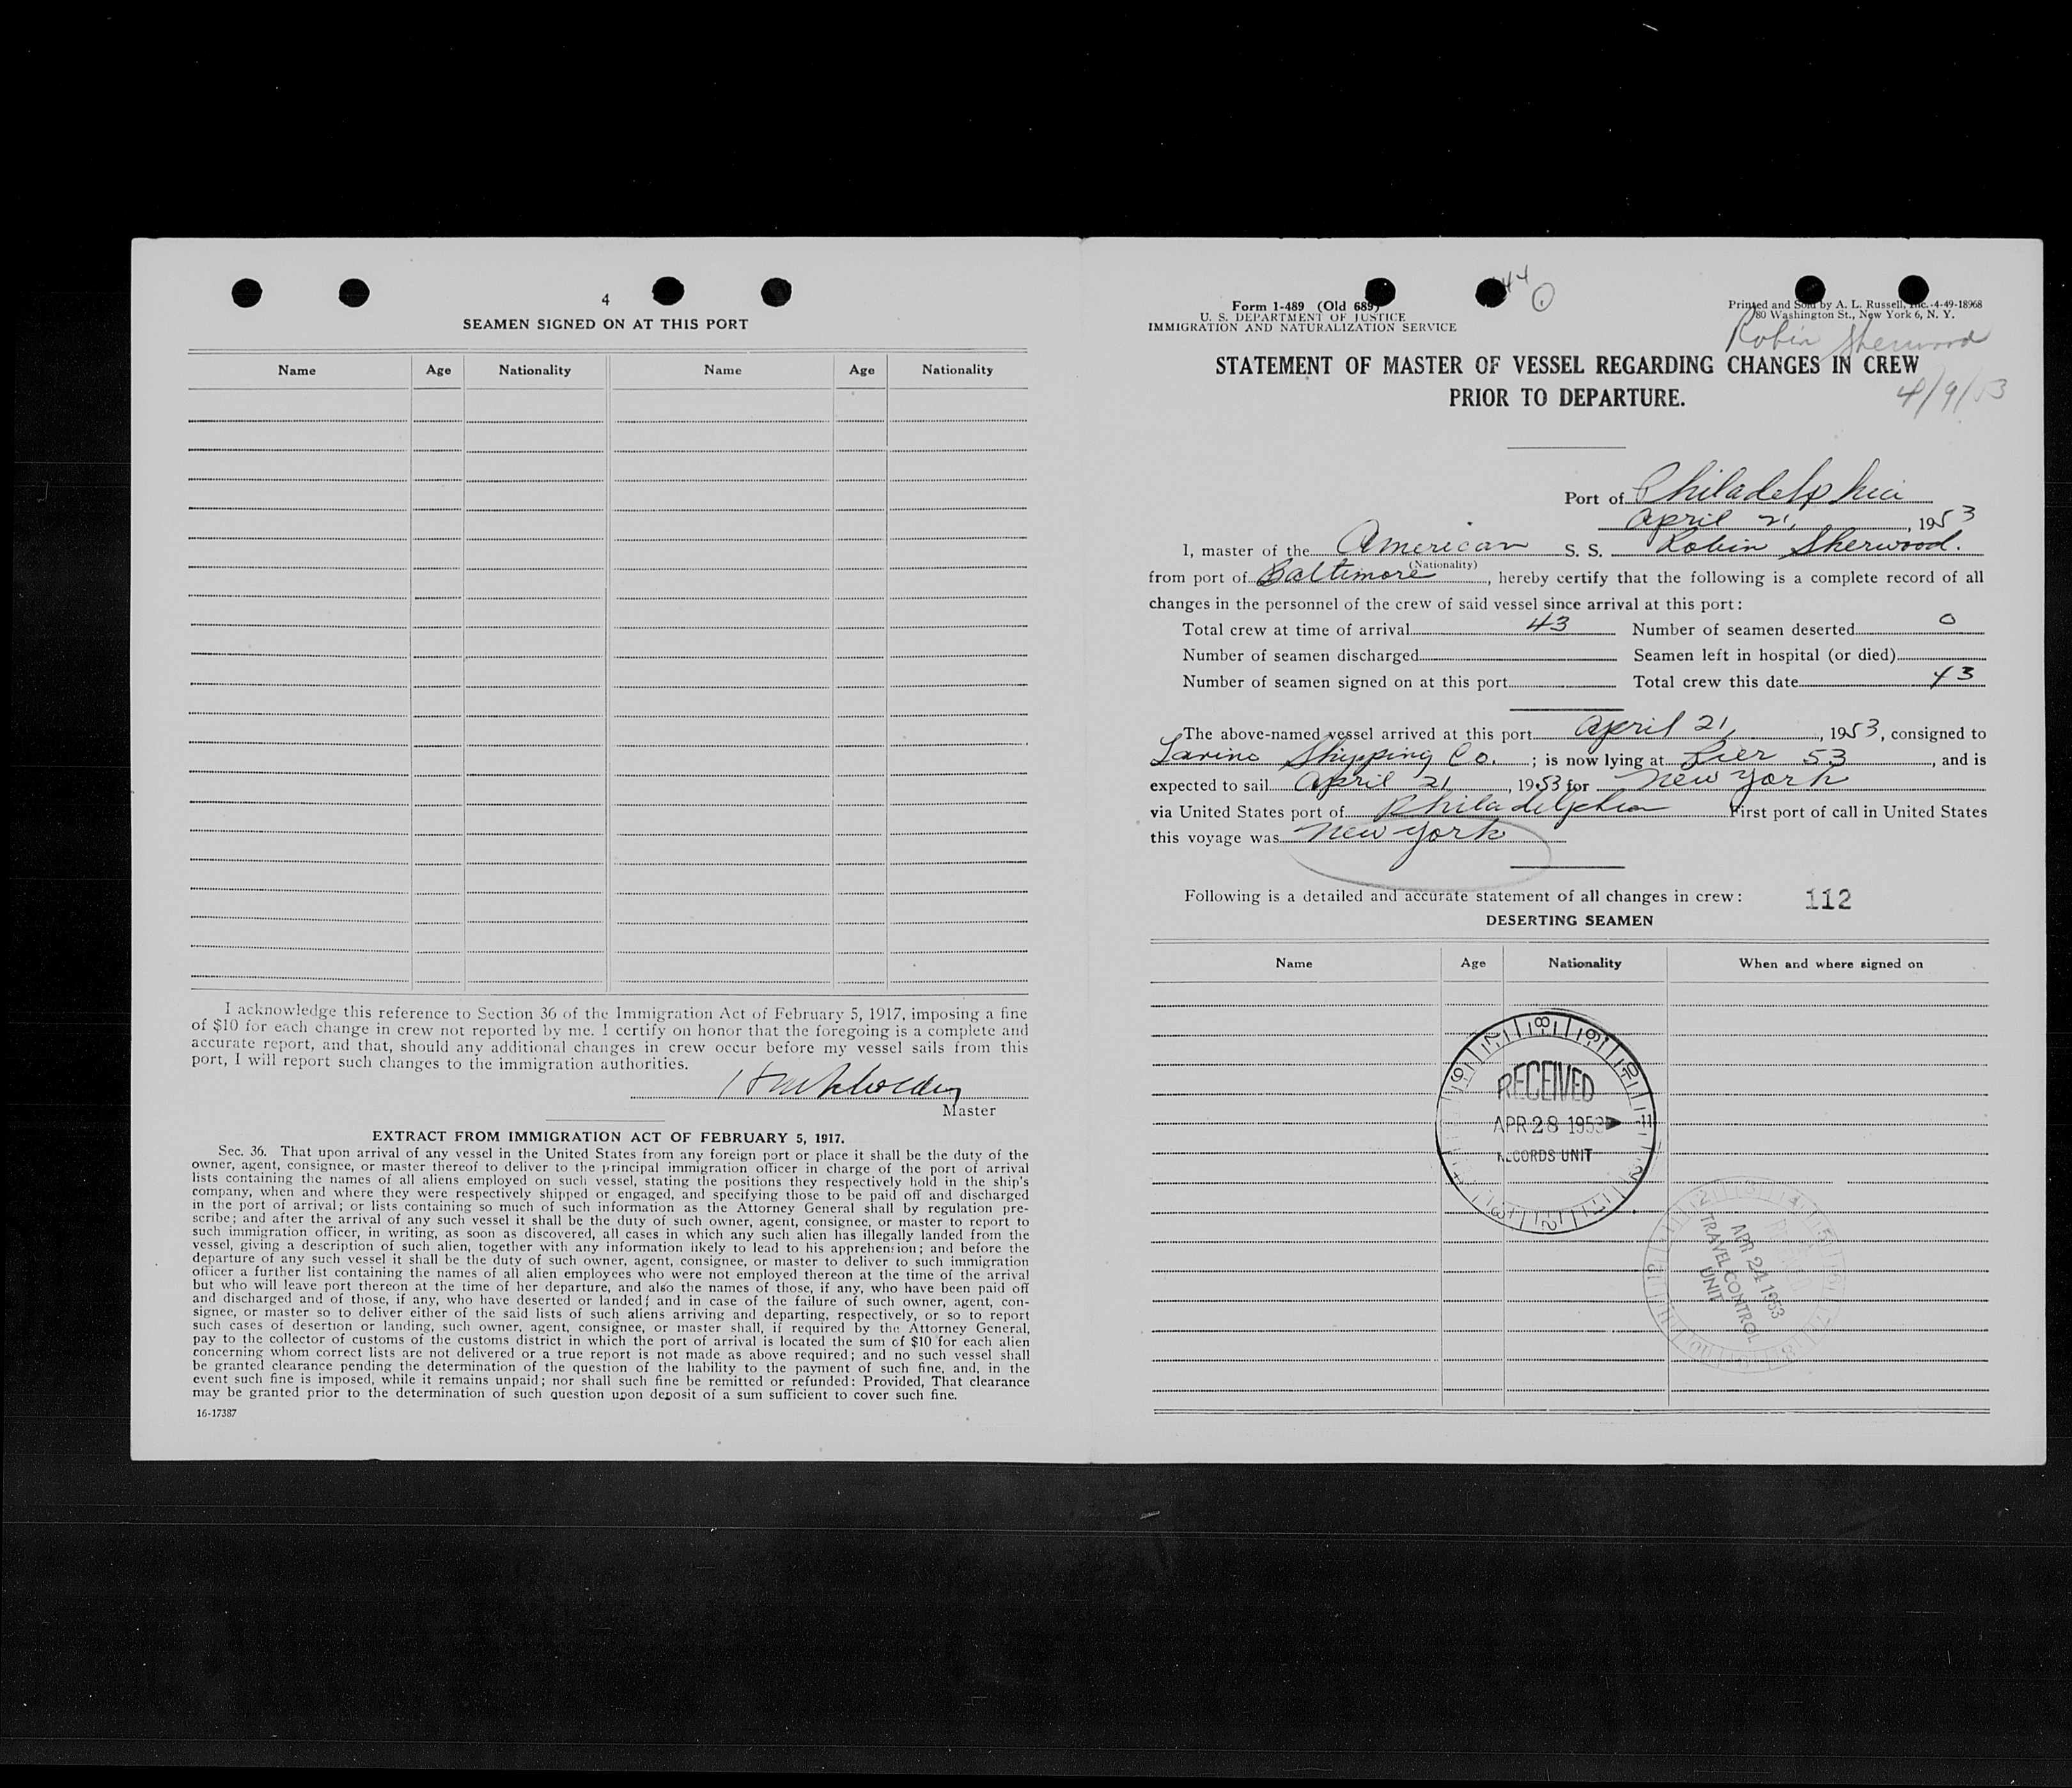 4
SEAMEN SIGNED ON AT THIS PORT
Name Age Nationality Name Age Nationality
I acknowledge this reference to Section 36 of the Immigration Act of February 5, 1917, imposing a fine
of $10 for each change in crew not reported by me. I certify on honor that the foregoing is a complete and
accurate report, and that, should any additional changes in crew occur before my vessel sails from this
port, I will report such changes to the immigration authorities.
Master
EXTRACT FROM IMMIGRATION ACT OF FEBRUARY 5, 1917.
Sec. 36. That upon arrival of any vessel in the United States from any foreign port or place it shall be the duty of the
owner, agent, consignee, or master thereof to deliver to the principal immigration officer in charge of the port of arrival
lists containing the names of all aliens employed on such vessel, stating the positions they respectively hold in the ship's
company, when and where they were respectively shipped or engaged, and specifying those to be paid off and discharged
in the port of arrival; or lists containing so much of such information as the Attorney General shall by regulation pre-
scribe; and after the arrival of any such vessel it shall be the duty of such owner, agent, consignee, or master to report to
such immigration officer, in writing, as soon as discovered, all cases in which any such alien has illegally landed from the
vessel, giving a description of such alien, together with any information likely to lead to his apprehension; and before the
departure of any such vessel it shall be the duty of such owner, agent, consignee, or master to deliver to such immigration
officer a further list containing the names of all alien employees who were not employed thereon at the time of the arrival
but who will leave port thereon at the time of her departure, and also the names of those, if any, who have been paid off
and discharged and of those, if any, who have deserted or landed; and in case of the failure of such owner, agent, con-
signee, or master so to deliver either of the said lists of such aliens arriving and departing, respectively, or so to report
such cases of desertion or landing, such owner, agent, consignee, or master shall, if required by the Attorney General,
pay to the collector of customs of the customs district in which the port of arrival is located the sum of $10 for each alien
concerning whom correct lists are not delivered or a true report is not made as above required; and no such vessel shall
be granted clearance pending the determination of the question of the liability to the payment of such fine, and, in the
event such fine is imposed, while it remains unpaid; nor shall such fine be remitted or refunded: Provided, That clearance
may be granted prior to the determination of such question upon deposit of a sum sufficient to cover such fine.
16-17387
44
Form 1-489 (Old 689)
U. S. DEPARTMENT OF JUSTICE
IMMIGRATION AND NATURALIZATION SERVICE
Printed and Sold by A. L. Russell, Inc.-4-49-18968
80 Washington St., New York 6, N. Y.
Robin Sherwood
STATEMENT OF MASTER OF VESSEL REGARDING CHANGES IN CREW
PRIOR TO DEPARTURE.
4/9/53
Port of Philadelphia
April 21, 1953
I, master of the American S. S. Robin Sherwood.
(Nationality)
from port of Baltimore, hereby certify that the following is a complete record of all
changes in the personnel of the crew of said vessel since arrival at this port:
Total crew at time of arrival 43 Number of seamen deserted 0
Number of seamen discharged Seamen left in hospital (or died)
Number of seamen signed on at this port Total crew this date 43
The above-named vessel arrived at this port April 21, 1953, consigned to
Lavino Shipping Co. ; is now lying at Pier 53, and is
expected to sail April 21, 1953 for New York
via United States port of Philadelphia First port of call in United States
this voyage was New York
Following is a detailed and accurate statement of all changes in crew: 112
DESERTING SEAMEN
Name Age Nationality When and where signed on
RECEIVED
APR 28 1953
RECORDS UNIT
APR 24 1953
TRAVEL CONTROL
UNIT